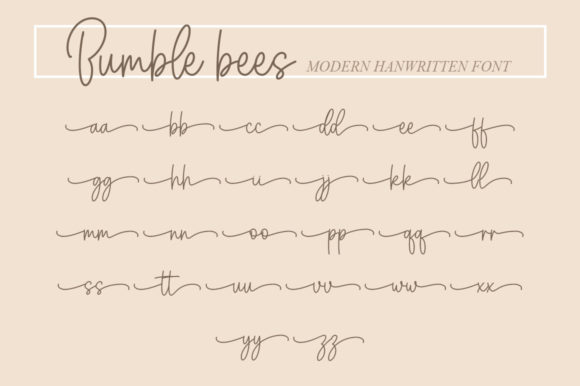 Bumble bees MODERN HANWRITTEN FONT
aa bb cc dd ee ff
gg hh ii jj kk ll
mm nn oo pp qq rr
ss tt uu vv ww xx
yy zz